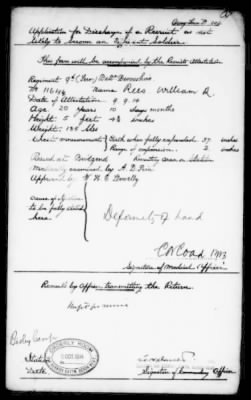 Application for Discharge of a Recruit as not
likely to become an Efficient Soldier.
This form will be accompanied by the Recruit's Attestation
Regiment 9th (Ser) Batt Devonshire
No 11614 Name Rees William R.
Date of Attestation 9.9.14
Age 20 years 10 days months
Height 5 feet inches
Weight lbs
Chest measurement Girth when fully expanded 37 inches
Range of expansion 2 inches
Raised at Bridgend Recruiting area or station
Medically examined by A. D.
Approved by
Cause of
to be fully stated
here.
Deformity of hand
Signature of Medical Officer
Remarks by Officer transmitting the Return.
Unfit for
Station
Date
ORDERLY ROOM
OCT 1914
Signature of Commanding Officer